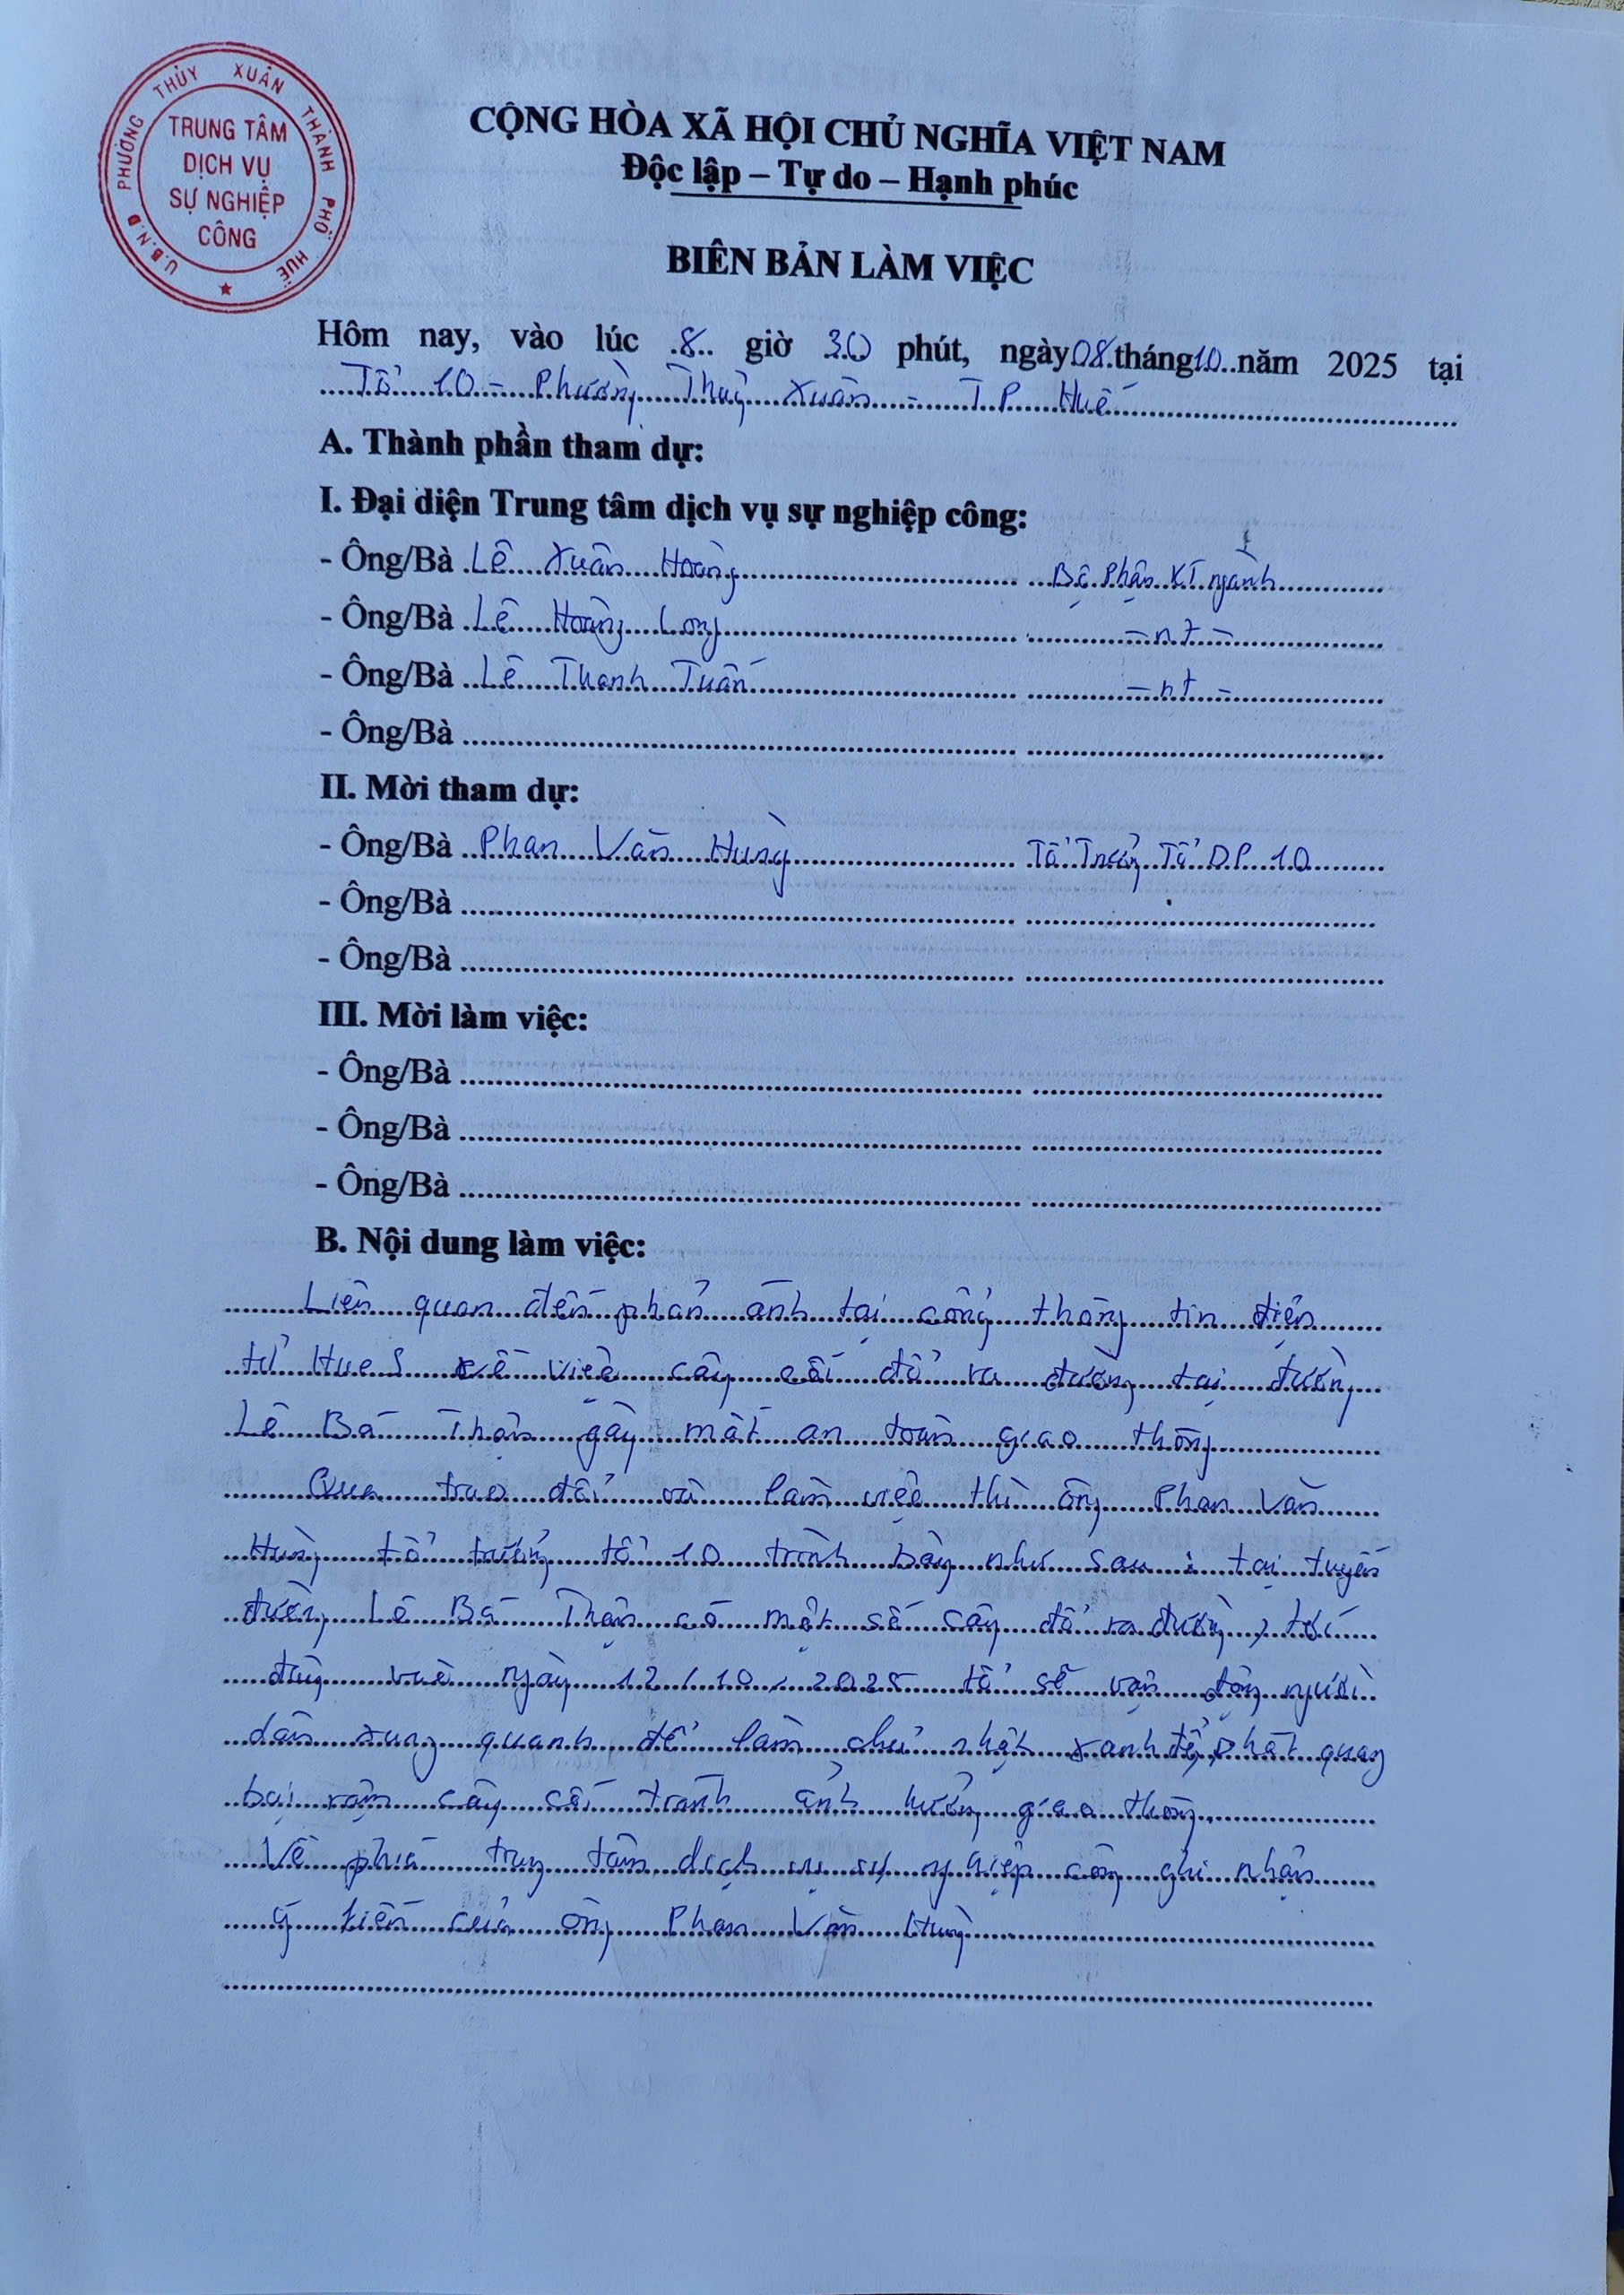 U.B.N.D PHƯỜNG THỦY XUÂN THÀNH PHỐ HUẾ
TRUNG TÂM
DỊCH VỤ
SỰ NGHIỆP
CÔNG
CỘNG HÒA XÃ HỘI CHỦ NGHĨA VIỆT NAM
Độc lập – Tự do – Hạnh phúc
BIÊN BẢN LÀM VIỆC
Hôm nay, vào lúc 8 giờ 30 phút, ngày 08 tháng 10 năm 2025 tại
Tổ 10 - Phường Thuỷ Xuân - T.P Huế
A. Thành phần tham dự:
I. Đại diện Trung tâm dịch vụ sự nghiệp công:
- Ông/Bà Lê Xuân Hoàng Bộ Phận KT ngành
- Ông/Bà Lê Hoàng Long - nt -
- Ông/Bà Lê Thanh Tuấn - nt -
- Ông/Bà
II. Mời tham dự:
- Ông/Bà Phan Văn Hùng Tổ Trưởng Tổ D.P 10
- Ông/Bà
- Ông/Bà
III. Mời làm việc:
- Ông/Bà
- Ông/Bà
- Ông/Bà
B. Nội dung làm việc:
Liên quan đến phản ánh tại cổng thông tin điện
tử Hue S về việc cây cối đổ ra đường tại đường
Lê Bá Thận gây mất an toàn giao thông
Qua trao đổi và làm việc thì ông Phan Văn
Hùng tổ trưởng tổ 10 trình bày như sau : tại tuyến
đường Lê Bá Thận có một số cây đổ ra đường, tới
đúng vào ngày 12/10/2025 tổ sẽ vận động người
dân xung quanh để làm chủ nhật xanh để phát quang
bụi rậm cây cối tránh ảnh hưởng giao thông.
Về phía trung tâm dịch vụ sự nghiệp công ghi nhận
ý kiến của ông Phan Văn Hùng